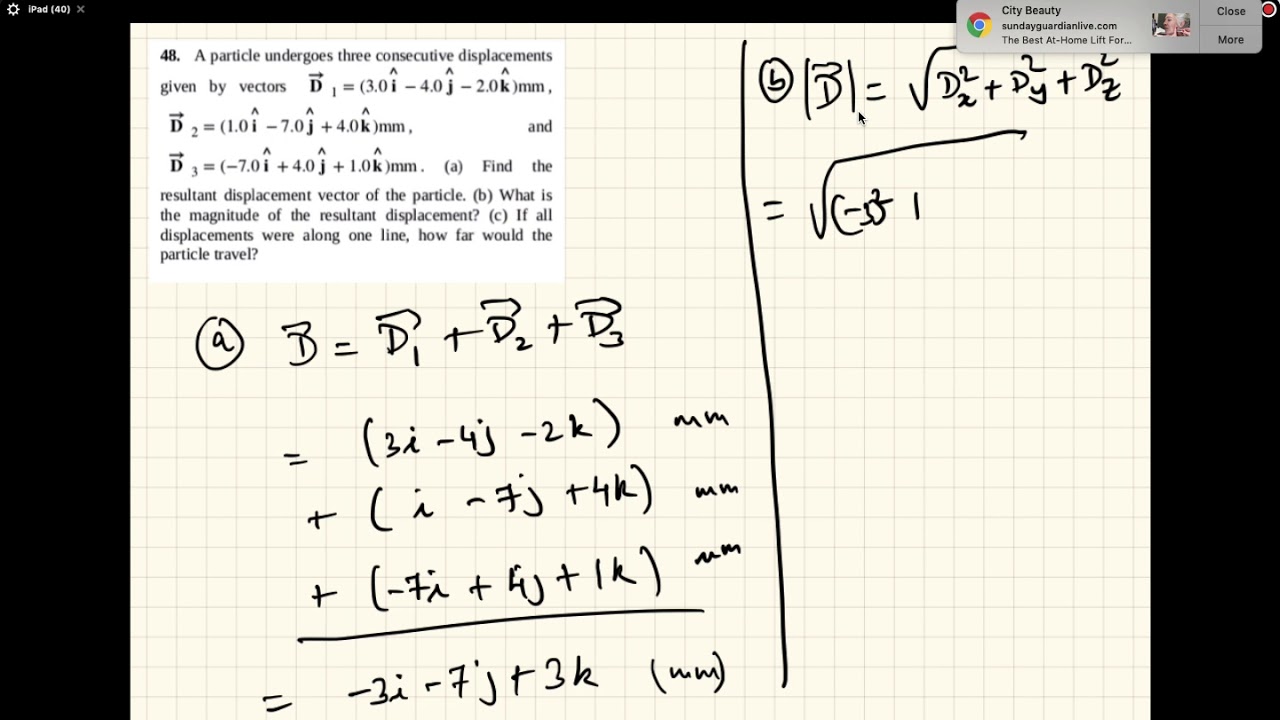 iPad (40)
City Beauty
sundayguardianlive.com
The Best At-Home Lift For...
Close
More
48. A particle undergoes three consecutive displacements
given by vectors D⃗ ₁ = (3.0î − 4.0ĵ − 2.0k̂)mm,
D⃗ ₂ = (1.0î − 7.0ĵ + 4.0k̂)mm, and
D⃗ ₃ = (−7.0î + 4.0ĵ + 1.0k̂)mm. (a) Find the
resultant displacement vector of the particle. (b) What is
the magnitude of the resultant displacement? (c) If all
displacements were along one line, how far would the
particle travel?
(a) D⃗ = D⃗₁ + D⃗₂ + D⃗₃
= (3i − 4j − 2k) mm
+ (i − 7j + 4k) mm
+ (−7i + 4j + 1k) mm
= −3i − 7j + 3k (mm)
(b) |D⃗| = √(Dx² + Dy² + Dz²)
= √(−3)²